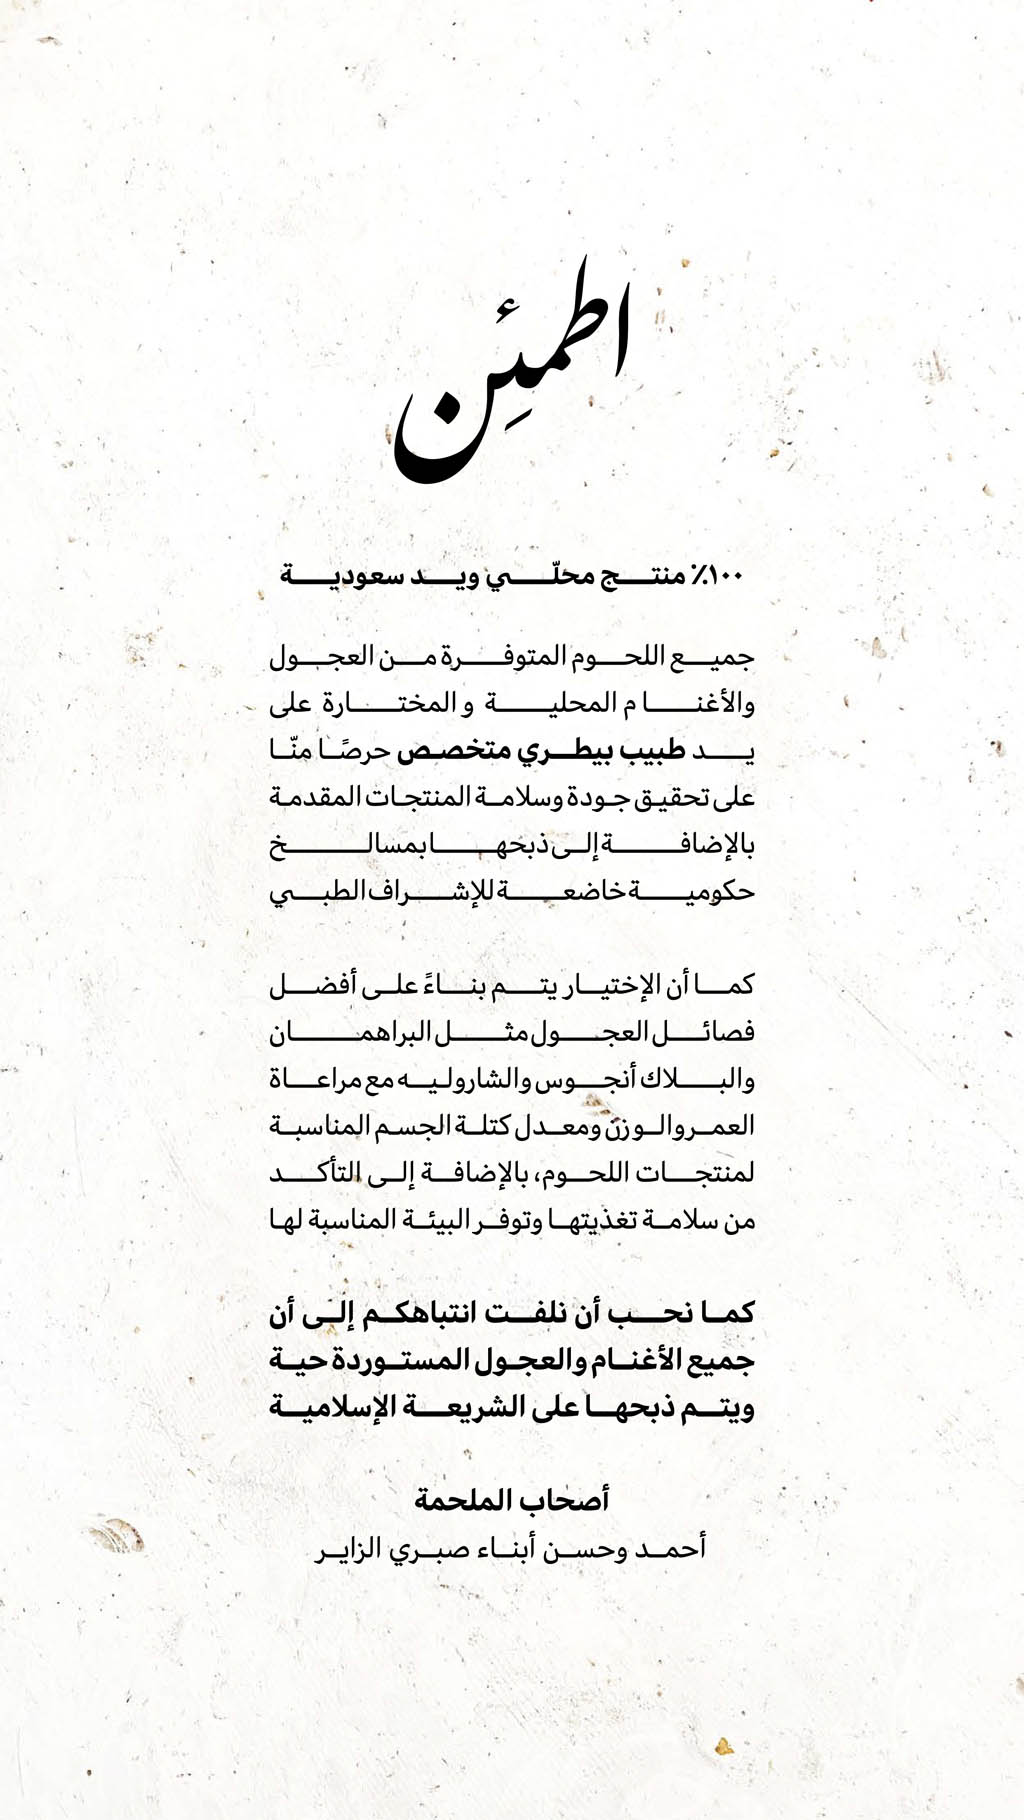 اطمئِن
١٠٠٪ منتج محلّي ويد سعودية
جميع اللحوم المتوفرة من العجول
والأغنام المحلية والمختارة على
يد طبيب بيطري متخصص حرصًا منّا
على تحقيق جودة وسلامة المنتجات المقدمة
بالإضافة إلى ذبحها بمسالخ
حكومية خاضعة للإشراف الطبي
كما أن الإختيار يتم بناءً على أفضل
فصائل العجول مثل البراهمان
والبلاك أنجوس والشاروليه مع مراعاة
العمر والوزن ومعدل كتلة الجسم المناسبة
لمنتجات اللحوم، بالإضافة إلى التأكد
من سلامة تغذيتها وتوفر البيئة المناسبة لها
كما نحب أن نلفت انتباهكم إلى أن
جميع الأغنام والعجول المستوردة حية
ويتم ذبحها على الشريعة الإسلامية
أصحاب الملحمة
أحمد وحسن أبناء صبري الزاير